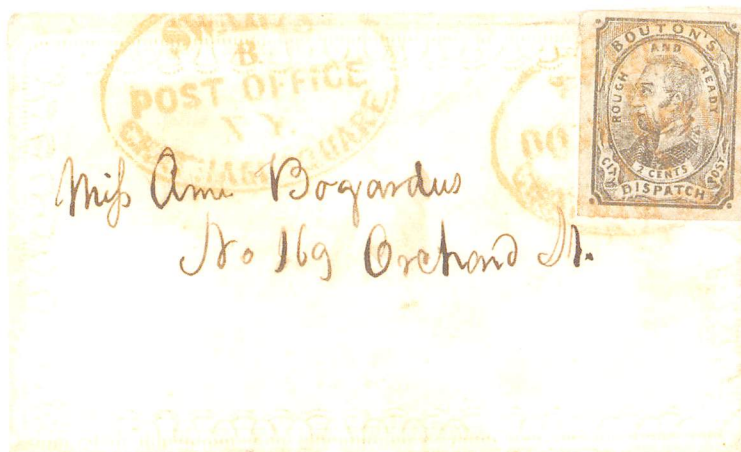 B
POST OFFICE
SQUARE
BOUTON'S
ROUGH AND READY
2 CENTS
CITY DISPATCH POST
Miſs Ann Bogardus
No 169 Orchard St.